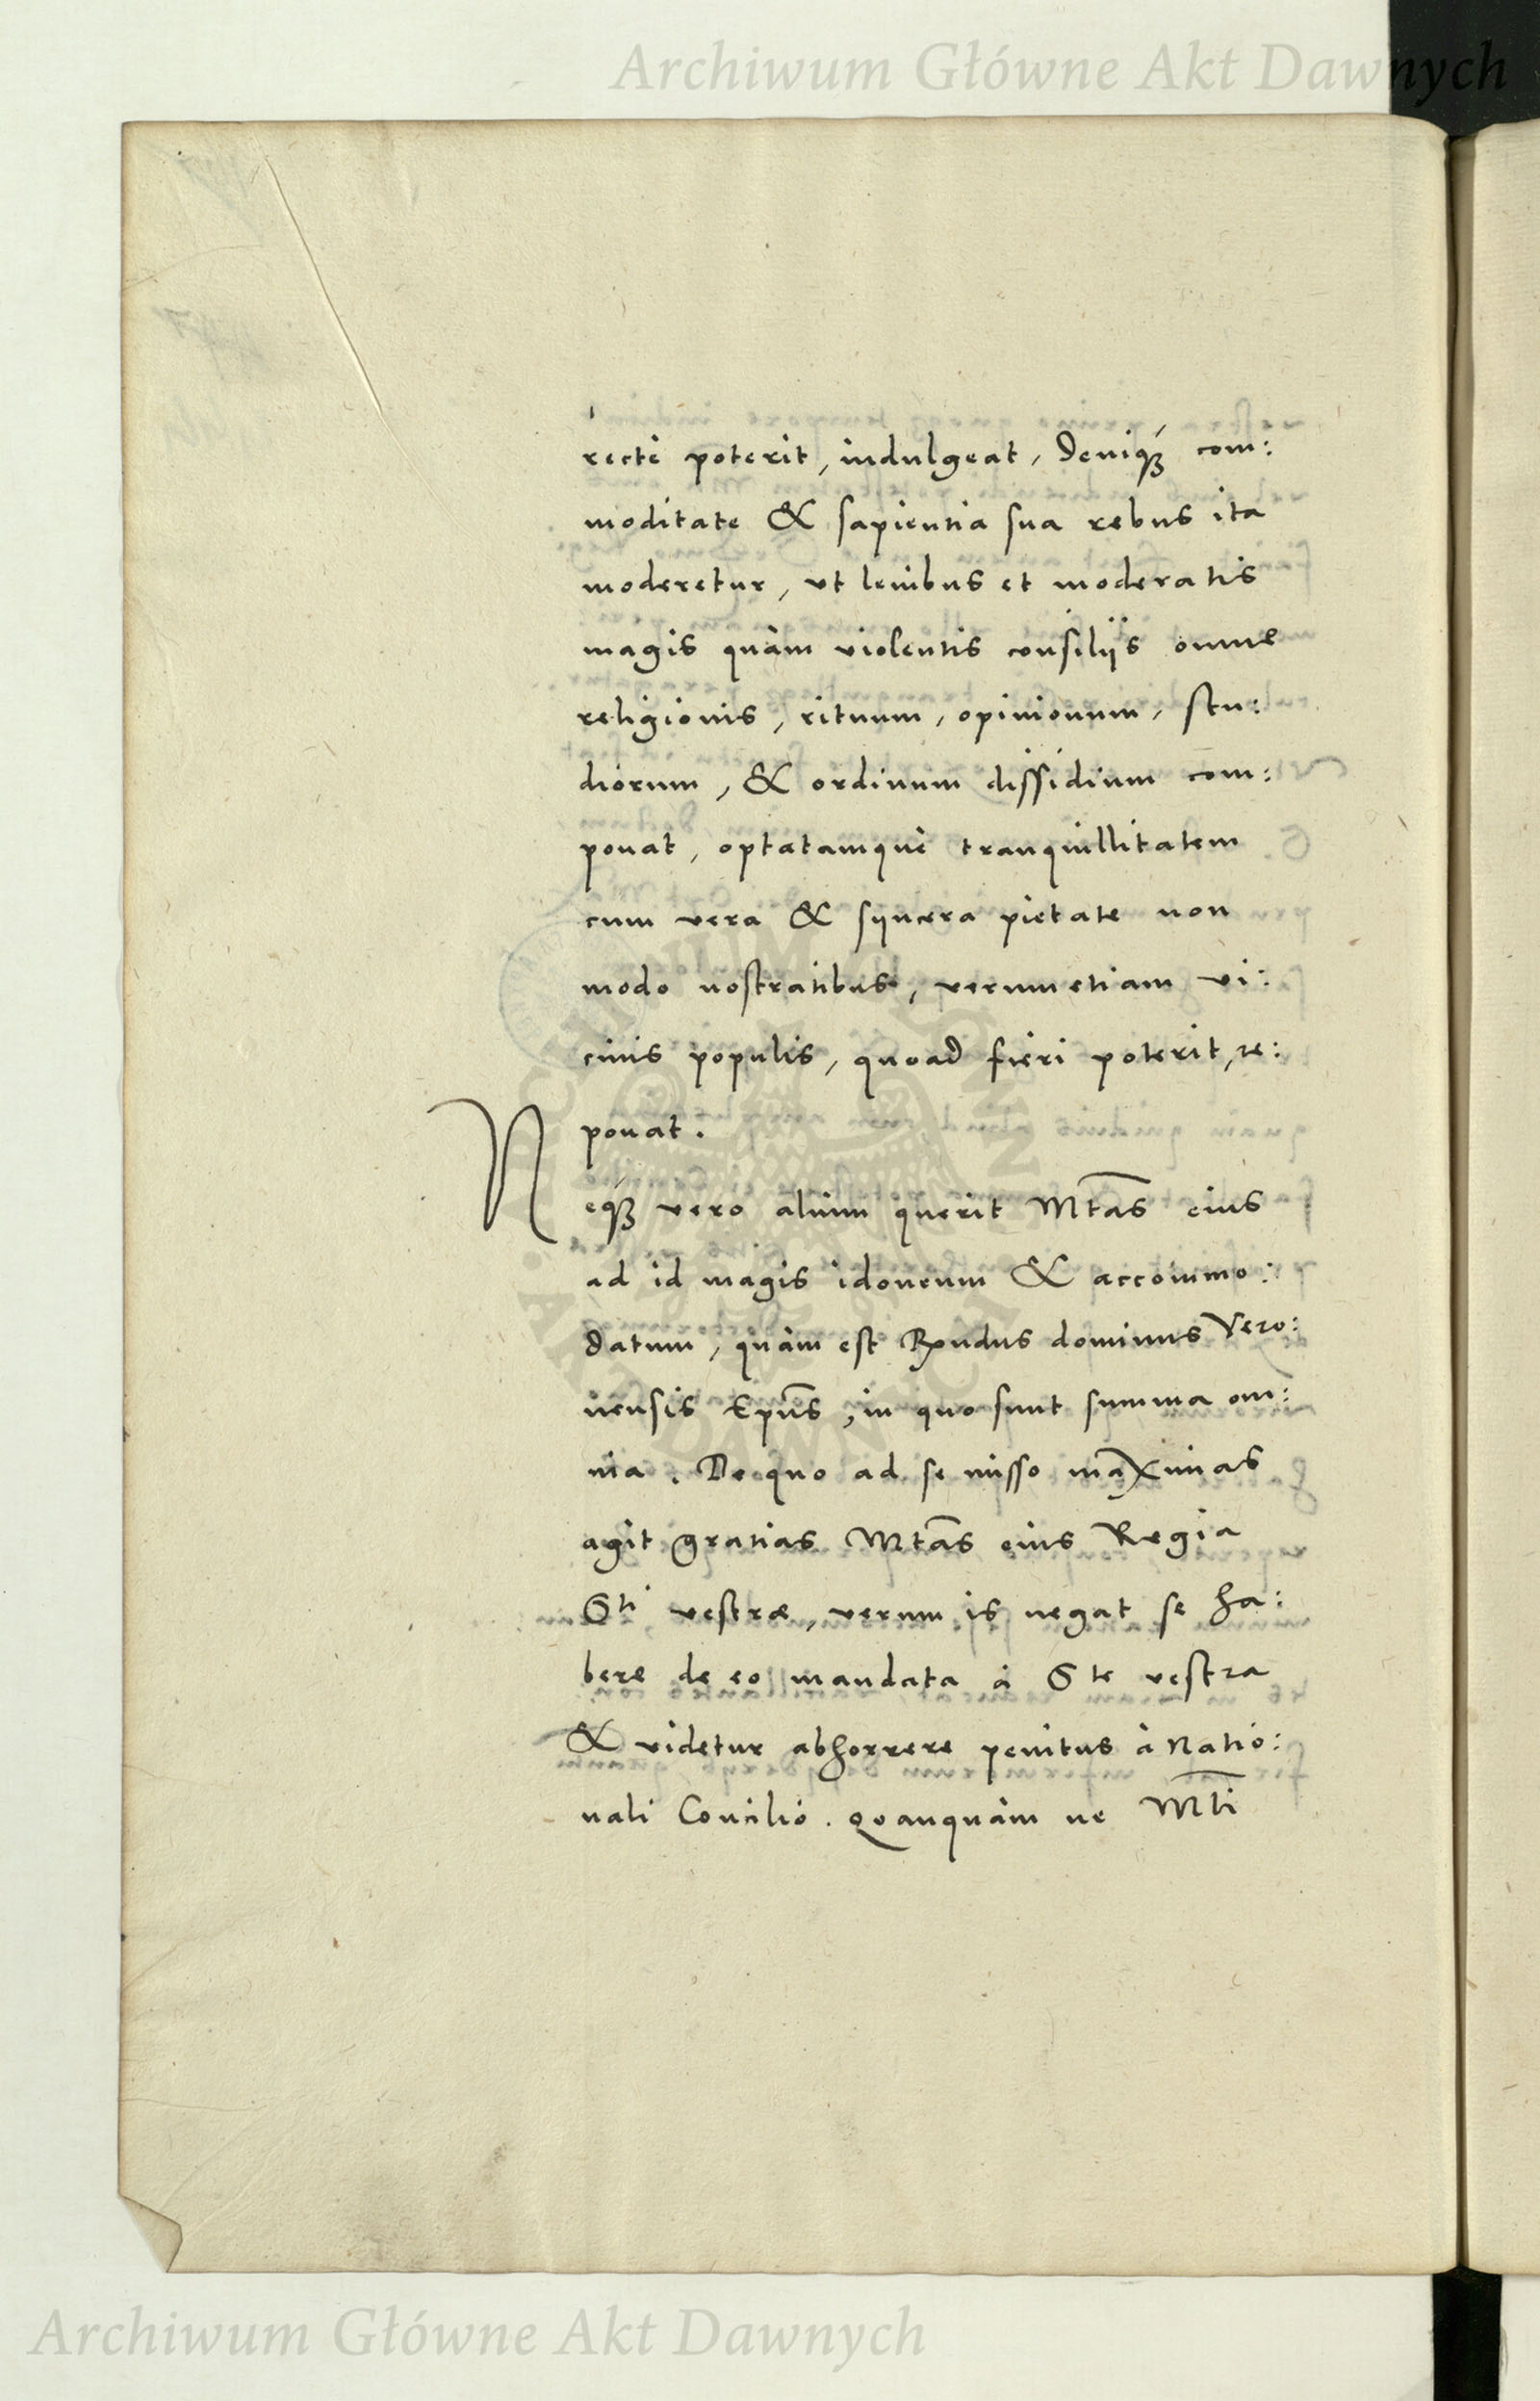 Archiwum Główne Akt Dawnych
recte poterit, indulgeat, Deniqȝ com:
moditate & sapientia sua rebus ita
moderetur, ut lenibus et moderatis
magis quàm violentis consiliis omne
religionis, rituum, opinionum, stu:
diorum, & ordinum dissidium com:
ponat, optatamque tranquillitatem
cum vera & syncera pietate non
modo nostratibus, verumetiam vi:
cinis populis, quoad fieri poterit, re:
ponat.
Neqȝ vero alium querit Mtas eius
ad id magis idoneum & accommo:
datum, quàm est Rndus dominus Vero:
nensis Epus, in quo sunt summa om:
nia. De quo ad se misso maximas
agit gratias Mtas eius Regia
Sti vestræ, verum is negat se ha:
bere de eo mandata à Ste vestra
& videtur abhorrere penitus à Natio:
nali Concilio. Quanquàm ne Mti
Archiwum Główne Akt Dawnych